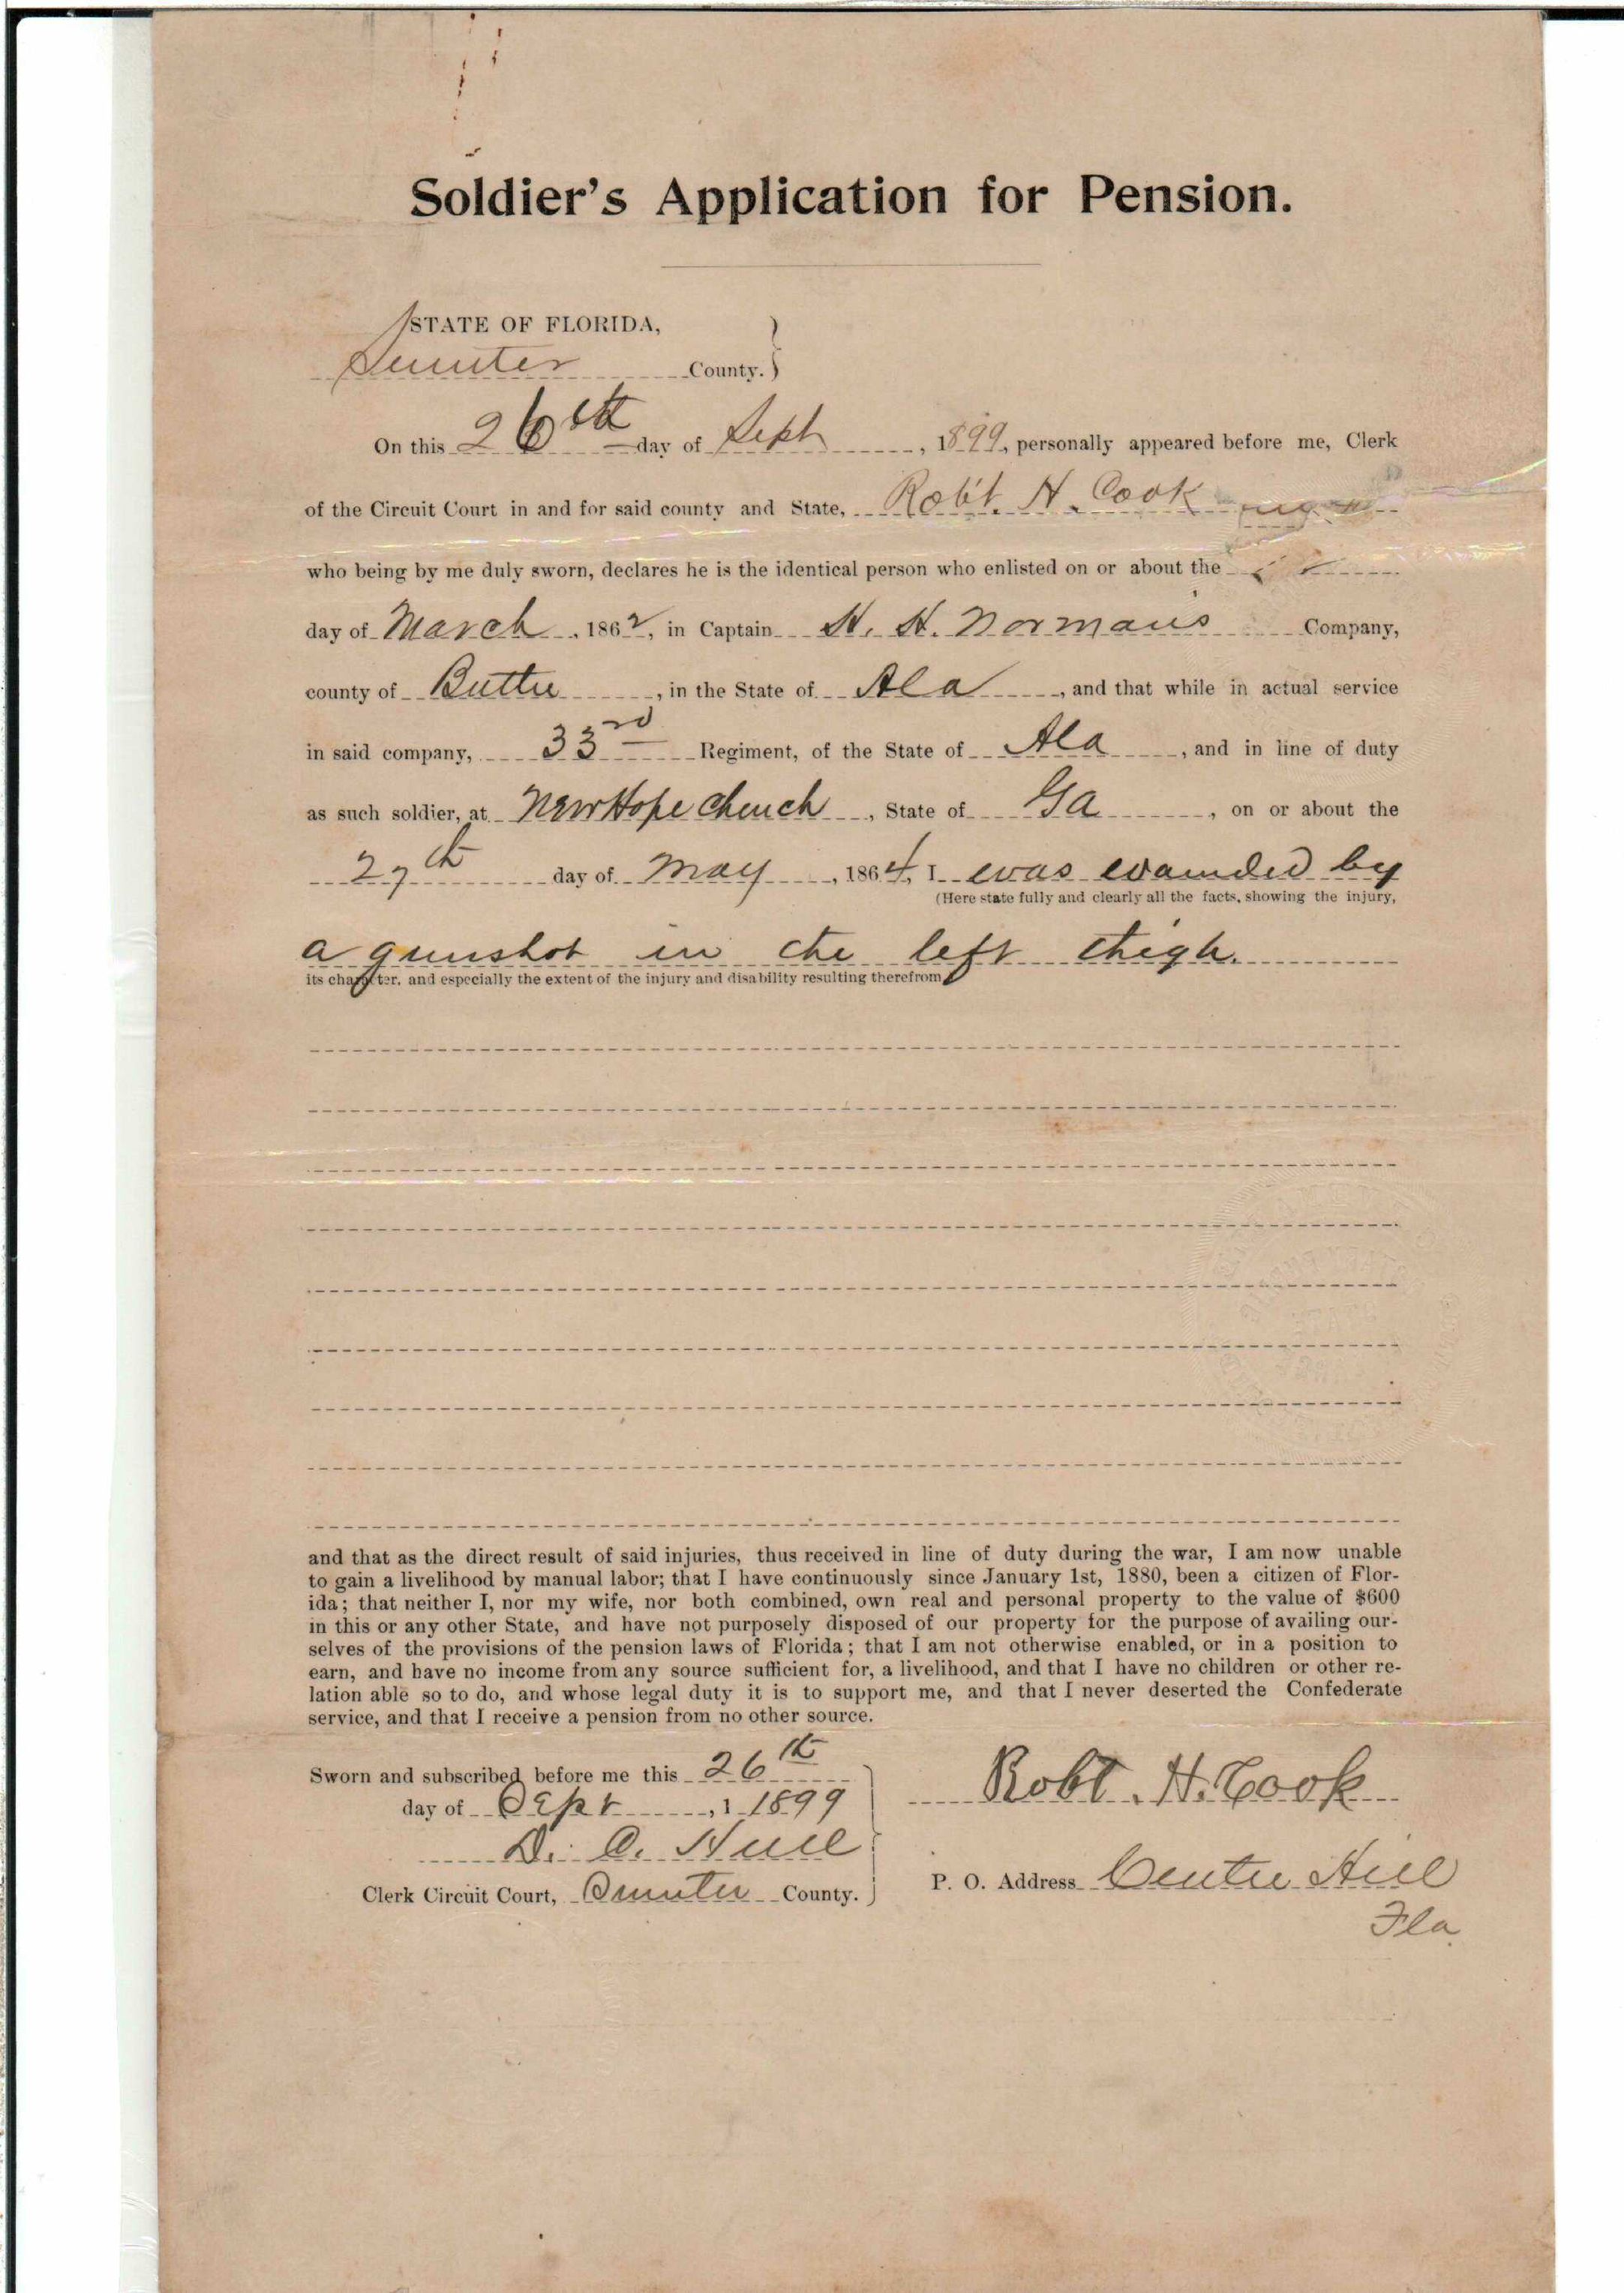 Soldier's Application for Pension.
STATE OF FLORIDA,
Sumter County.
On this 26th day of Sept, 1899, personally appeared before me, Clerk
of the Circuit Court in and for said county and State, Robt. H. Cook
who being by me duly sworn, declares he is the identical person who enlisted on or about the
day of March, 1862, in Captain H. H. Normans Company,
county of Butler, in the State of Ala, and that while in actual service
in said company, 33rd Regiment, of the State of Ala, and in line of duty
as such soldier, at New Hope Church, State of Ga, on or about the
27th day of May, 1864, I was wounded by
(Here state fully and clearly all the facts, showing the injury,
a gunshot in the left thigh.
its character, and especially the extent of the injury and disability resulting therefrom
and that as the direct result of said injuries, thus received in line of duty during the war, I am now unable
to gain a livelihood by manual labor; that I have continuously since January 1st, 1880, been a citizen of Flor-
ida; that neither I, nor my wife, nor both combined, own real and personal property to the value of $600
in this or any other State, and have not purposely disposed of our property for the purpose of availing our-
selves of the provisions of the pension laws of Florida; that I am not otherwise enabled, or in a position to
earn, and have no income from any source sufficient for, a livelihood, and that I have no children or other re-
lation able so to do, and whose legal duty it is to support me, and that I never deserted the Confederate
service, and that I receive a pension from no other source.
Sworn and subscribed before me this 26th
day of Sept, 1 1899
Robt. H. Cook
D. C. Hull
Clerk Circuit Court, Sumter County.
P. O. Address Center Hill
Fla.